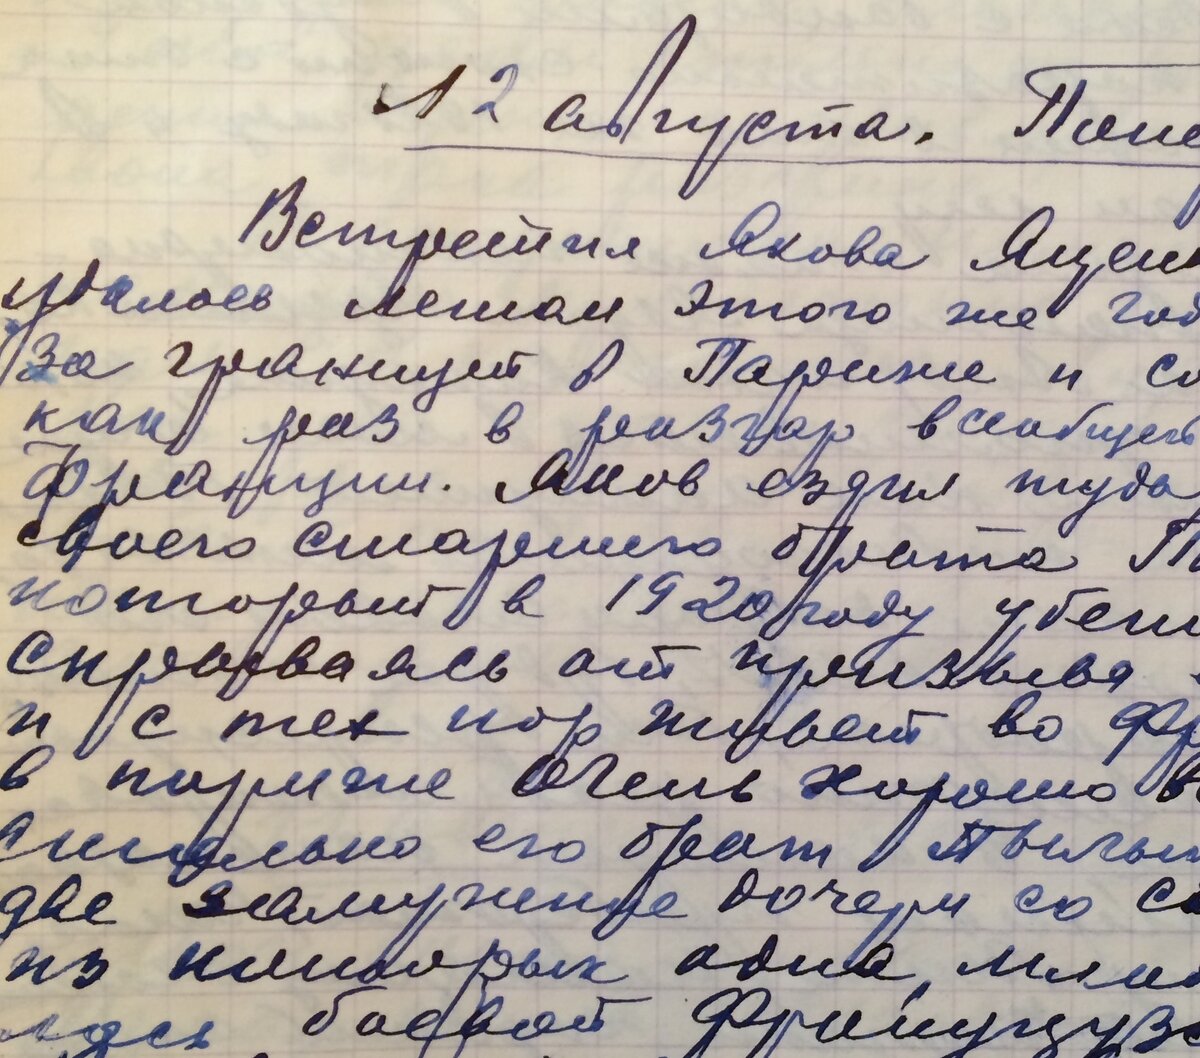 12 августа. Поне
Встретил Якова Яцен
удалось летом этого же год
За границей в Париже и со
как раз в разгар всеобщей
Франции. Яков ездил туда
своего старшего брата
который в 1920 году убеж
скрываясь от призыва
и с тех пор живет во Фр
в париже очень хорошо
его брат
две замужние дочери со с
из которых одна, млад
боевой Француз